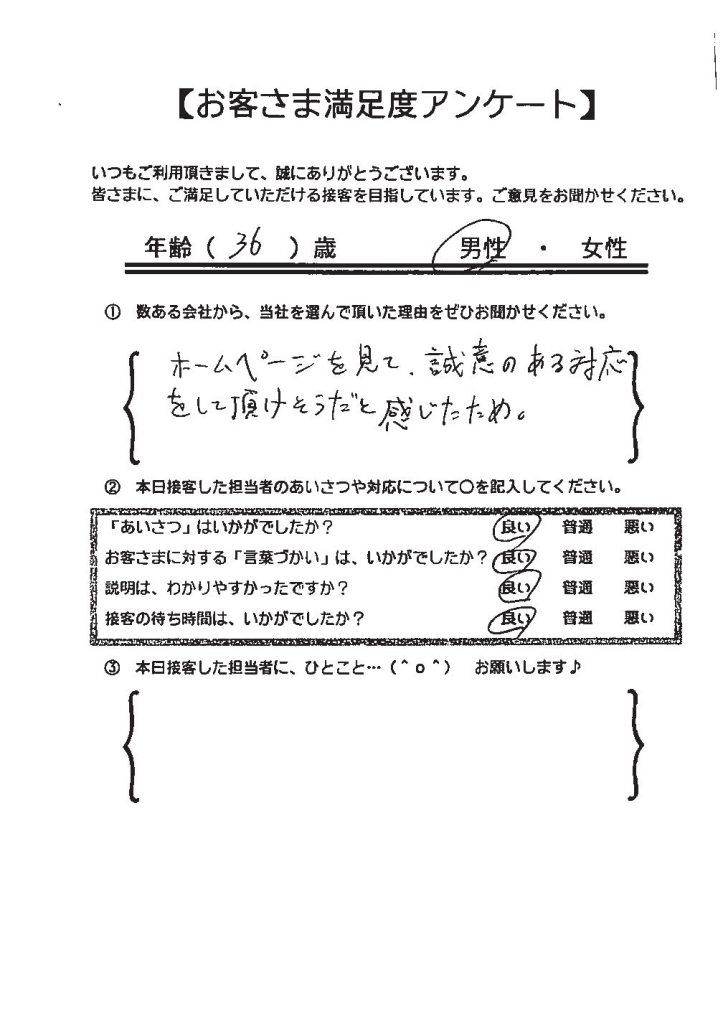 【お客さま満足度アンケート】
いつもご利用頂きまして、誠にありがとうございます。
皆さまに、ご満足していただける接客を目指しています。ご意見をお聞かせください。
年齢（ 36 ）歳 男性 ・ 女性
① 数ある会社から、当社を選んで頂いた理由をぜひお聞かせください。
ホームページを見て、誠意のある対応
をして頂けそうだと感じたため。
② 本日接客した担当者のあいさつや対応について〇を記入してください。
「あいさつ」はいかがでしたか？ 良い 普通 悪い
お客さまに対する「言葉づかい」は、いかがでしたか？ 良い 普通 悪い
説明は、わかりやすかったですか？ 良い 普通 悪い
接客の待ち時間は、いかがでしたか？ 良い 普通 悪い
③ 本日接客した担当者に、ひとこと…（＾ｏ＾） お願いします♪